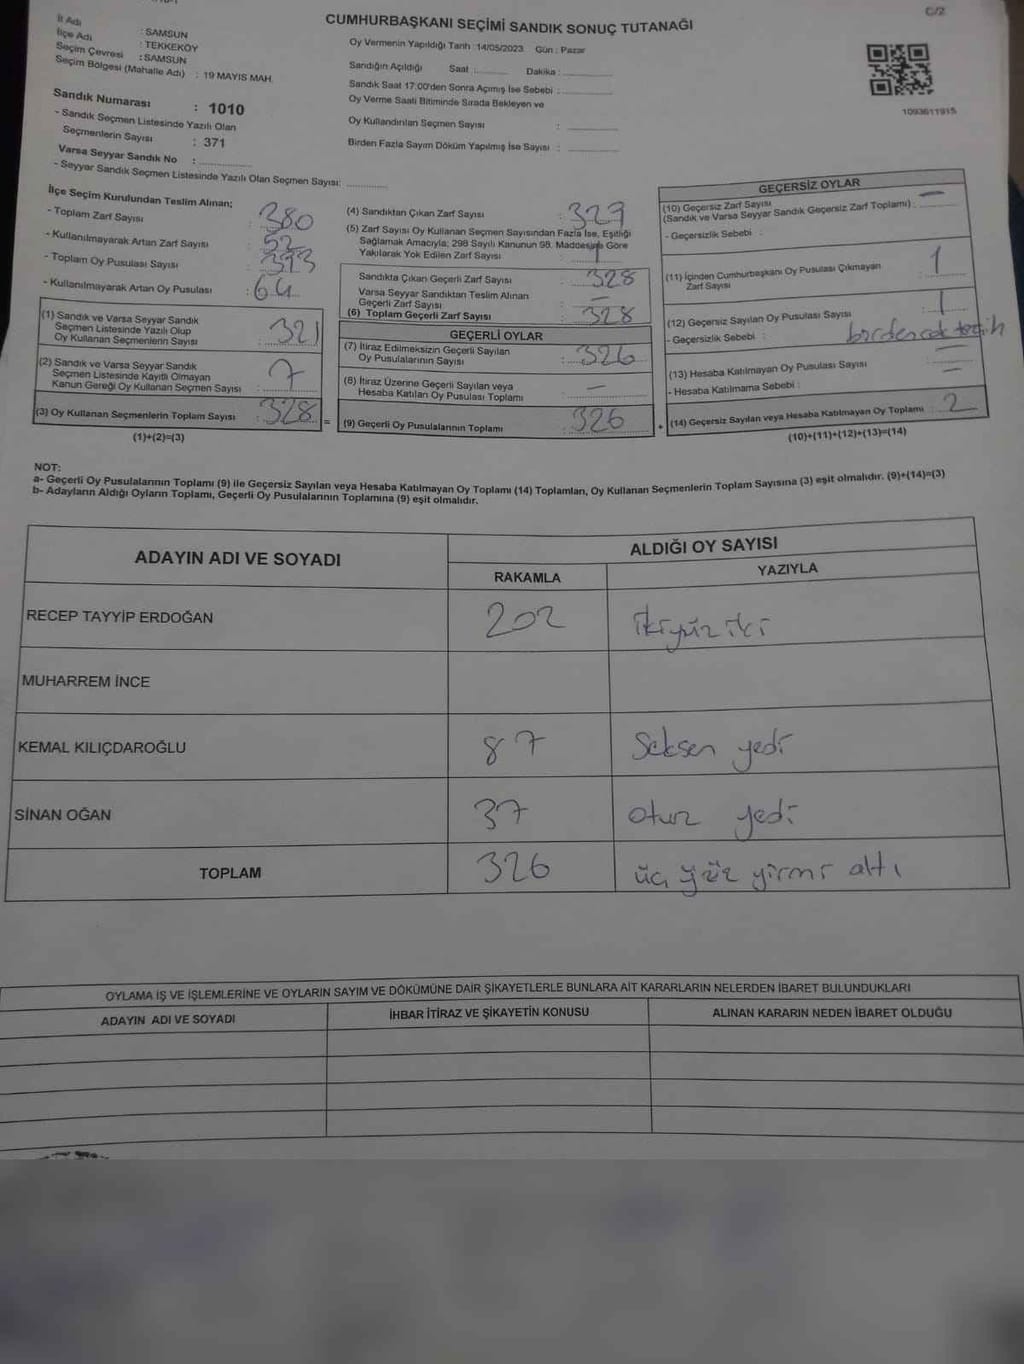 C/2
CUMHURBAŞKANI SEÇİMİ SANDIK SONUÇ TUTANAĞI
İl Adı : SAMSUN
İlçe Adı : TEKKEKÖY
Seçim Çevresi : SAMSUN
Seçim Bölgesi (Mahalle Adı) : 19 MAYIS MAH.
Sandık Numarası : 1010
- Sandık Seçmen Listesinde Yazılı Olan
Seçmenlerin Sayısı : 371
Varsa Seyyar Sandık No :
- Seyyar Sandık Seçmen Listesinde Yazılı Olan Seçmen Sayısı:
Oy Vermenin Yapıldığı Tarih :14/05/2023 Gün : Pazar
Sandığın Açıldığı Saat : Dakika :
Sandık Saat 17:00'den Sonra Açımış İse Sebebi :
Oy Verme Saati Bitiminde Sırada Bekleyen ve
Oy Kullandırılan Seçmen Sayısı :
Birden Fazla Sayım Döküm Yapılmış İse Sayısı :
1093611915
İlçe Seçim Kurulundan Teslim Alınan;
- Toplam Zarf Sayısı : 380
- Kullanılmayarak Artan Zarf Sayısı : 52
- Toplam Oy Pusulası Sayısı : 393
- Kullanılmayarak Artan Oy Pusulası : 64
(1) Sandık ve Varsa Seyyar Sandık
Seçmen Listesinde Yazılı Olup
Oy Kullanan Seçmenlerin Sayısı : 321
(2) Sandık ve Varsa Seyyar Sandık
Seçmen Listesinde Kayıtlı Olmayan
Kanun Gereği Oy Kullanan Seçmen Sayısı : 7
(3) Oy Kullanan Seçmenlerin Toplam Sayısı : 328 =
(1)+(2)=(3)
(4) Sandıktan Çıkan Zarf Sayısı : 329
(5) Zarf Sayısı Oy Kullanan Seçmen Sayısından Fazla İse, Eşitliği
Sağlamak Amacıyla; 298 Sayılı Kanunun 98. Maddesine Göre
Yakılarak Yok Edilen Zarf Sayısı : 1
Sandıkta Çıkan Geçerli Zarf Sayısı : 328
Varsa Seyyar Sandıktan Teslim Alınan
Geçerli Zarf Sayısı : –
(6) Toplam Geçerli Zarf Sayısı : 328
GEÇERLİ OYLAR
(7) İtiraz Edilmeksizin Geçerli Sayılan
Oy Pusulalarının Sayısı : 326
(8) İtiraz Üzerine Geçerli Sayılan veya
Hesaba Katılan Oy Pusulası Toplamı : –
(9) Geçerli Oy Pusulalarının Toplamı : 326 +
GEÇERSİZ OYLAR
(10) Geçersiz Zarf Sayısı
(Sandık ve Varsa Seyyar Sandık Geçersiz Zarf Toplamı) : –
- Geçersizlik Sebebi :
(11) İçinden Cumhurbaşkanı Oy Pusulası Çıkmayan
Zarf Sayısı : 1
(12) Geçersiz Sayılan Oy Pusulası Sayısı : 1
- Geçersizlik Sebebi : birden cok tercih
(13) Hesaba Katılmayan Oy Pusulası Sayısı : –
- Hesaba Katılmama Sebebi : –
(14) Geçersiz Sayılan veya Hesaba Katılmayan Oy Toplamı : 2
(10)+(11)+(12)+(13)=(14)
NOT:
a- Geçerli Oy Pusulalarının Toplamı (9) ile Geçersiz Sayılan veya Hesaba Katılmayan Oy Toplamı (14) Toplamları, Oy Kullanan Seçmenlerin Toplam Sayısına (3) eşit olmalıdır. (9)+(14)=(3)
b- Adayların Aldığı Oyların Toplamı, Geçerli Oy Pusulalarının Toplamına (9) eşit olmalıdır.
ADAYIN ADI VE SOYADI ALDIĞI OY SAYISI
RAKAMLA YAZIYLA
RECEP TAYYİP ERDOĞAN 202 ikiyüz iki
MUHARREM İNCE
KEMAL KILIÇDAROĞLU 87 Seksen yedi
SİNAN OĞAN 37 otuz yedi
TOPLAM 326 üç yüz yirmi altı
OYLAMA İŞ VE İŞLEMLERİNE VE OYLARIN SAYIM VE DÖKÜMÜNE DAİR ŞİKAYETLERLE BUNLARA AİT KARARLARIN NELERDEN İBARET BULUNDUKLARI
ADAYIN ADI VE SOYADI İHBAR İTİRAZ VE ŞİKAYETİN KONUSU ALINAN KARARIN NEDEN İBARET OLDUĞU